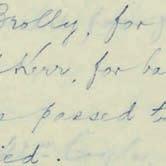 Brolly, for
Kerr, for ba
passed t
ied.